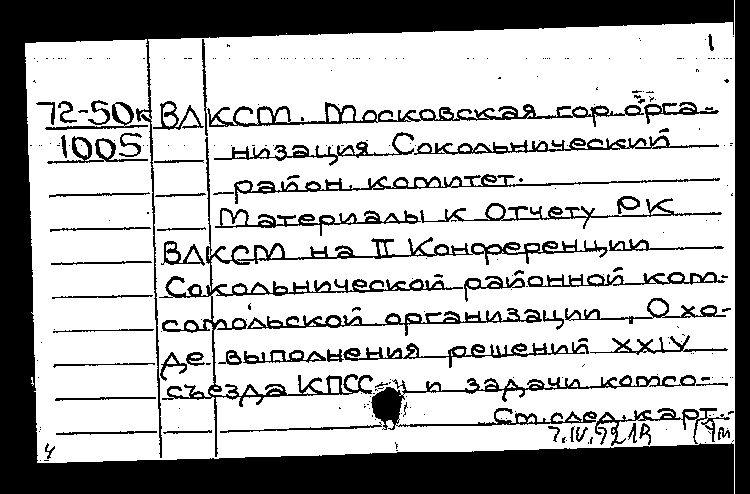 1
72-50к ВЛКСМ. Московская гор. орга-
1005 низация. Сокольнический
район. комитет.
Материалы к Отчету РК
ВЛКСМ на II Конференции
Сокольнической районной ком-
сомольской организации "О хо-
де выполнения решений XXIV
съезда КПСС и задачи комсо-
См. след. карт.